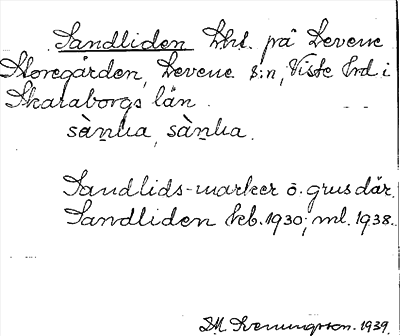 Sandliden Lht. på Levene
Storegården, Levene s:n, Viste hrd. i
Skaraborgs län.
sàṉlia, sàṉlia.
Sandlids-marker o. grus där.
Sandliden keb. 1930; ml. 1938.
D.M. Svenningson. 1939.